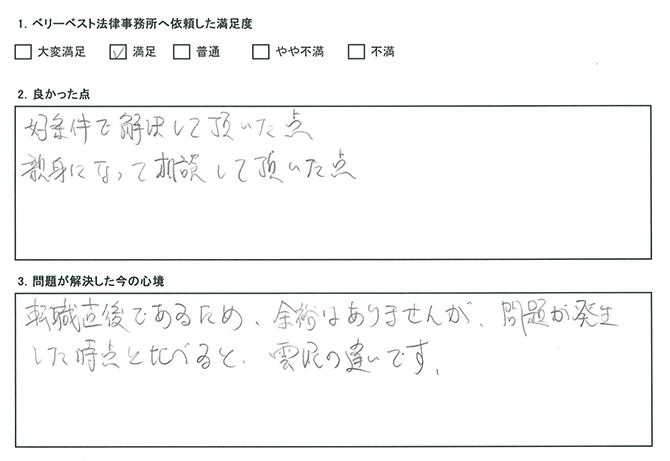 1. ベリーベスト法律事務所へ依頼した満足度
□ 大変満足 ☑ 満足 □ 普通 □ やや不満 □ 不満
2. 良かった点
好条件で解決して頂いた点
親身になって相談して頂いた点
3. 問題が解決した今の心境
転職直後であるため、余裕はありませんが、問題が発生
した時点と比べると、雲泥の違いです。